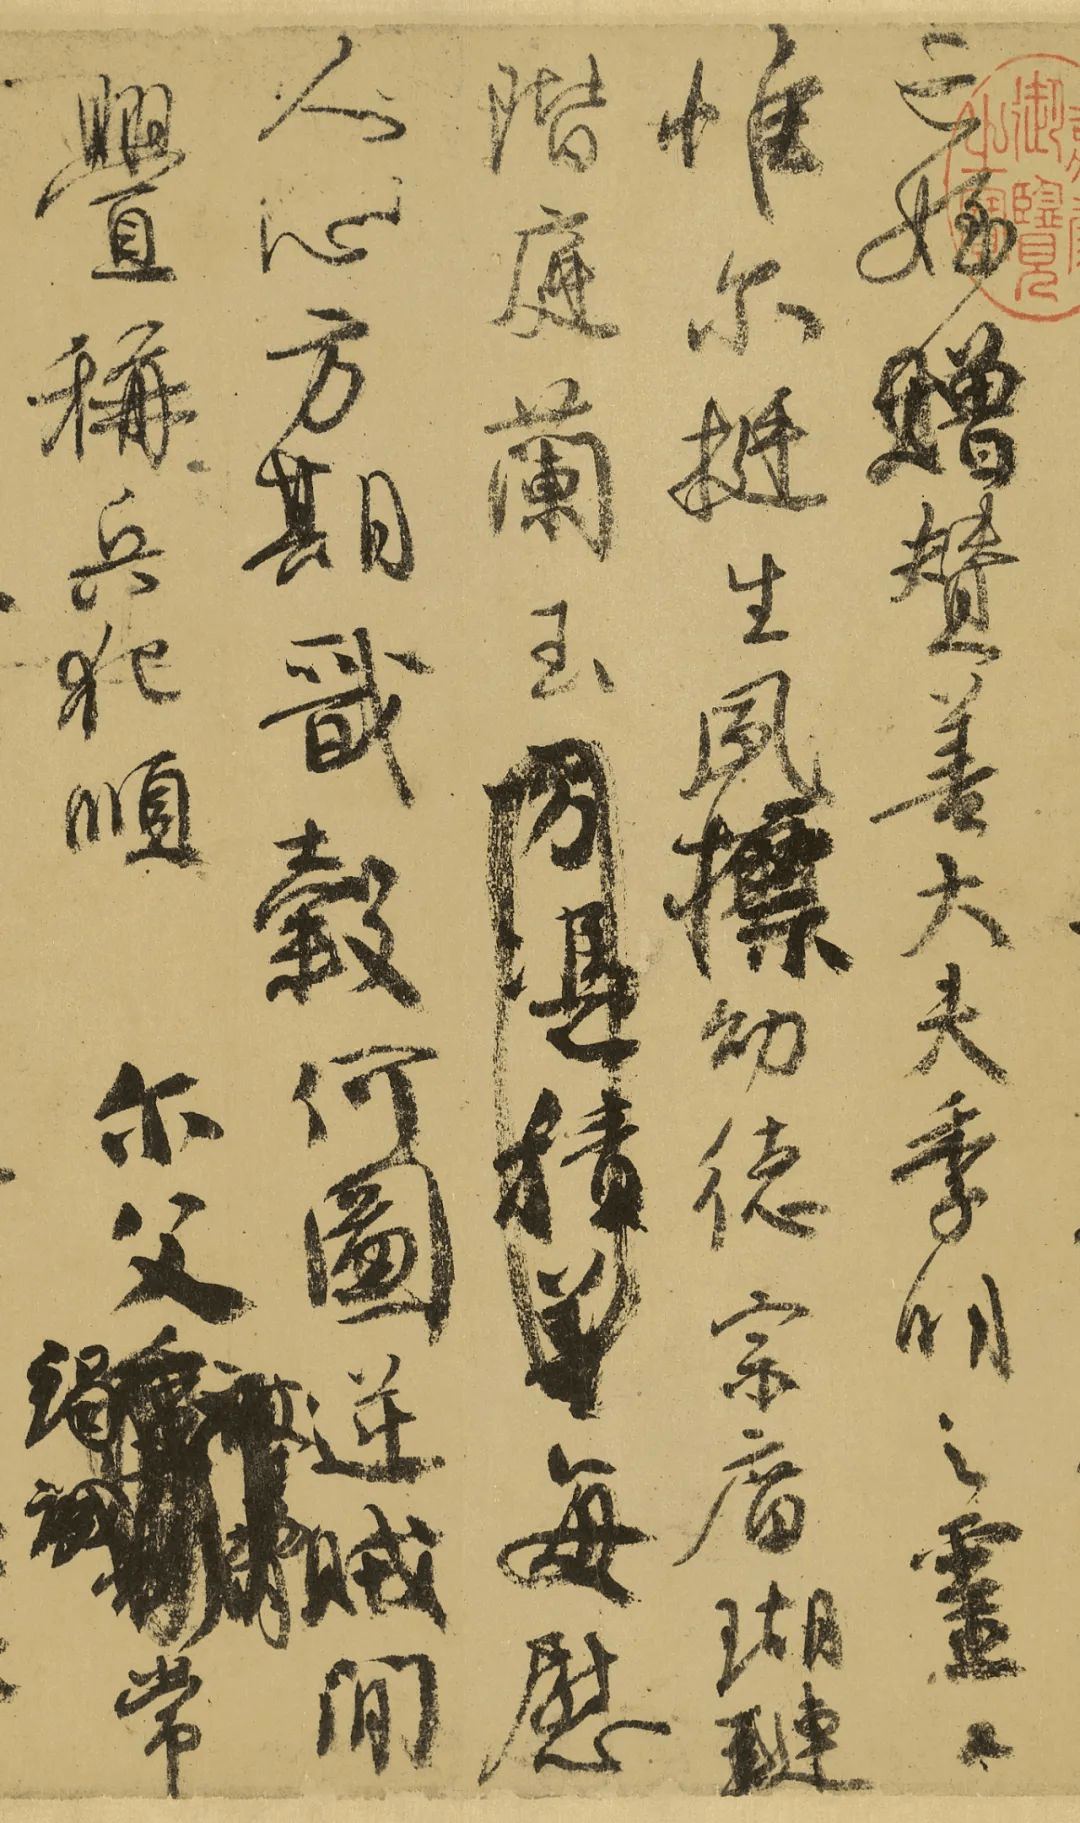 亡姪贈贊善大夫季明之靈曰
惟尔挺生夙標幼德宗庿瑚璉
階庭蘭玉方憑積善每慰
人心方期戩穀何圖逆賊閒
釁稱兵犯順尔父竭誠常
御覽